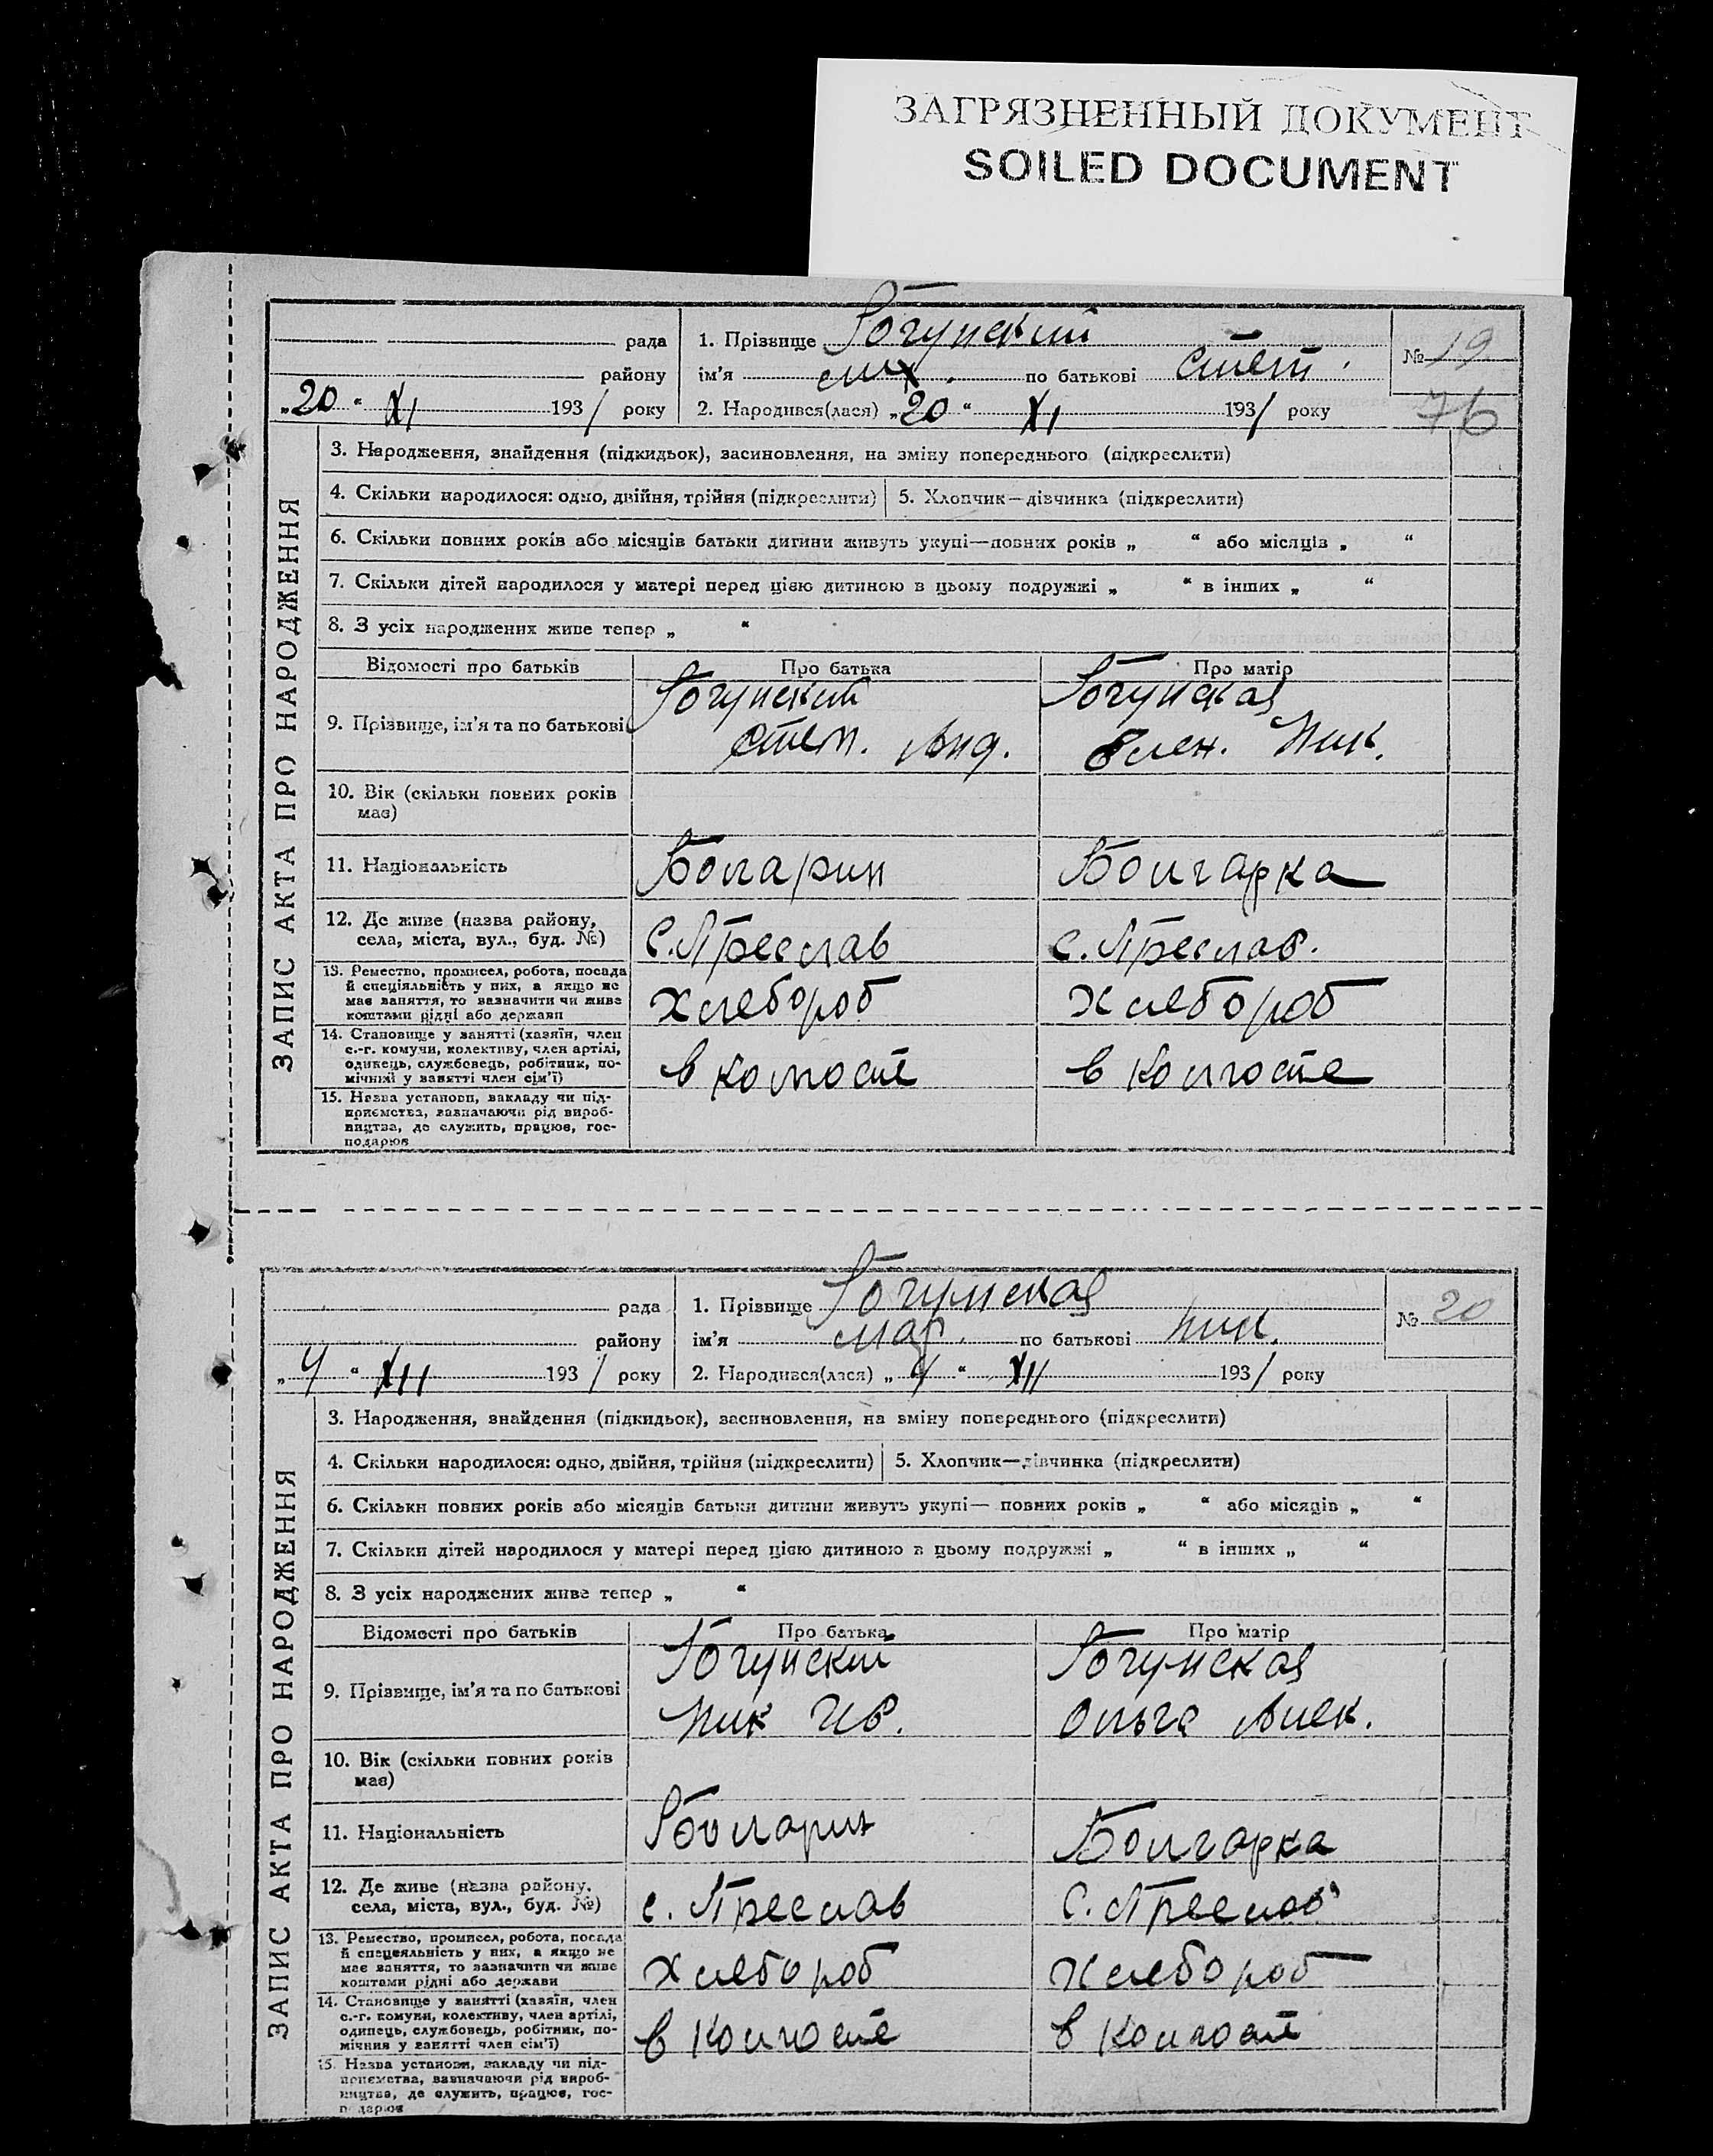 ЗАГРЯЗНЕННЫЙ ДОКУМЕНТ
SOILED DOCUMENT
рада
району
„20“ XI 1931 року
1. Прізвище Богунский
ім'я мих. по батькові степ.
2. Народився(лася) „20“ XI 1931 року
№ 19
76
ЗАПИС АКТА ПРО НАРОДЖЕННЯ
3. Народження, знайдення (підкидьок), засиновлення, на зміну попереднього (підкреслити)
4. Скільки народилося: одно, двійня, трійня (підкреслити) 5. Хлопчик—дівчинка (підкреслити)
6. Скільки повних років або місяців батьки дитини живуть укупі—повних років „ “ або місяців „ “
7. Скільки дітей народилося у матері перед цією дитиною в цьому подружжі „ “ в інших „ “
8. З усіх народжених живе тепер „ “
Відомості про батьків Про батька Про матір
9. Прізвище, ім'я та по батькові
Богунский
Степ. Анд.
Богунская
Елен. Ник.
10. Вік (скільки повних років
має)
11. Національність Болгарин Болгарка
12. Де живе (назва району,
села, міста, вул., буд. №)
С. Преслав с. Преслав.
13. Ремество, промисел, робота, посада
й спеціяльність у них, а якщо не
має заняття, то зазначити чи живе
коштами рідні або держави
Хлебороб Хлебороб
14. Становище у занятті (хазяїн, член
с.-г. комуни, колективу, член артілі,
одинець, службовець, робітник, по-
мічний у занятті член сім'ї)
в колхозе в колхозе
15. Назва установи, закладу чи під-
приємства, зазначаючи рід вироб-
ництва, де служить, працює, гос-
подарює
рада
району
„4“ XII 1931 року
1. Прізвище Богунская
ім'я мар. по батькові Ник.
2. Народився(лася) „4“ XII 1931 року
№ 20
ЗАПИС АКТА ПРО НАРОДЖЕННЯ
3. Народження, знайдення (підкидьок), засиновлення, на зміну попереднього (підкреслити)
4. Скільки народилося: одно, двійня, трійня (підкреслити) 5. Хлопчик—дівчинка (підкреслити)
6. Скільки повних років або місяців батьки дитини живуть укупі— повних років „ “ або місяців „ “
7. Скільки дітей народилося у матері перед цією дитиною в цьому подружжі „ “ в інших „ “
8. З усіх народжених живе тепер „ “
Відомості про батьків Про батька Про матір
9. Прізвище, ім'я та по батькові
Богунский
Ник Ив.
Богунская
Ольга Алек.
10. Вік (скільки повних років
має)
11. Національність Болгарин Болгарка
12. Де живе (назва району,
села, міста, вул., буд. №)
с. Преслав С. Преслав
13. Ремество, промисел, робота, посада
й спецеяльність у них, а якщо не
має заняття, то зазначити чи живе
коштами рідні або держави
Хлебороб Хлебороб
14. Становище у занятті (хазяїн, член
с.-г. комуни, колективу, член артілі,
одинець, службовець, робітник, по-
мічник у занятті член сім'ї)
в колхозе в колхозе
15. Назва установи, закладу чи під-
приємства, зазначаючи рід вироб-
ництва, де служить, працює, гос-
подарює